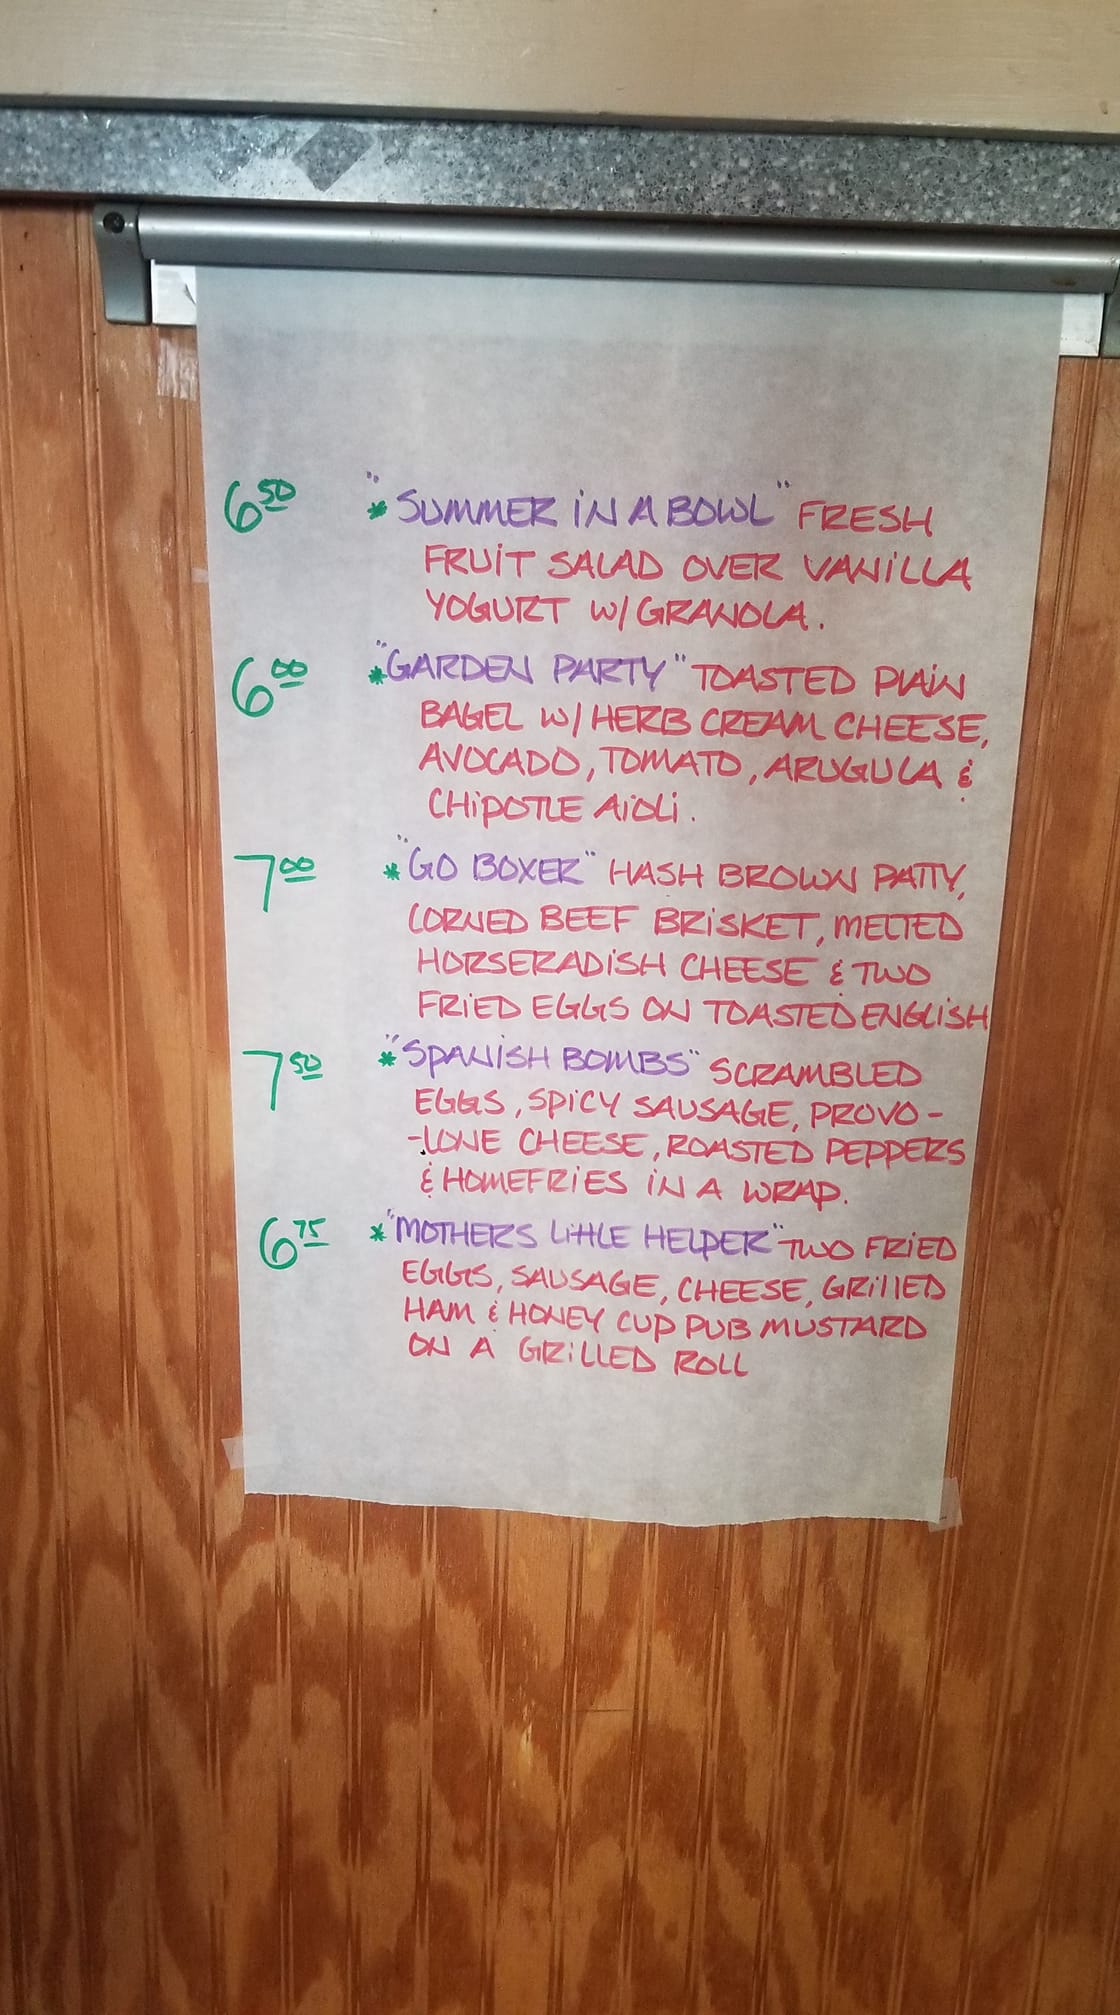 6 50 * "SUMMER IN A BOWL" FRESH
FRUIT SALAD OVER VANILLA
YOGURT W/ GRANOLA.
6 00 * "GARDEN PARTY" TOASTED PLAIN
BAGEL W/ HERB CREAM CHEESE,
AVOCADO, TOMATO, ARUGULA &
CHIPOTLE AIOLI.
7 00 * "GO BOXER" HASH BROWN PATTY,
CORNED BEEF BRISKET, MELTED
HORSERADISH CHEESE & TWO
FRIED EGGS ON TOASTED ENGLISH
7 50 * "SPANISH BOMBS" SCRAMBLED
EGGS, SPICY SAUSAGE, PROVO-
-LONE CHEESE, ROASTED PEPPERS
& HOMEFRIES IN A WRAP.
6 75 * "MOTHERS LITTLE HELPER" TWO FRIED
EGGS, SAUSAGE, CHEESE, GRILLED
HAM & HONEY CUP PUB MUSTARD
ON A GRILLED ROLL